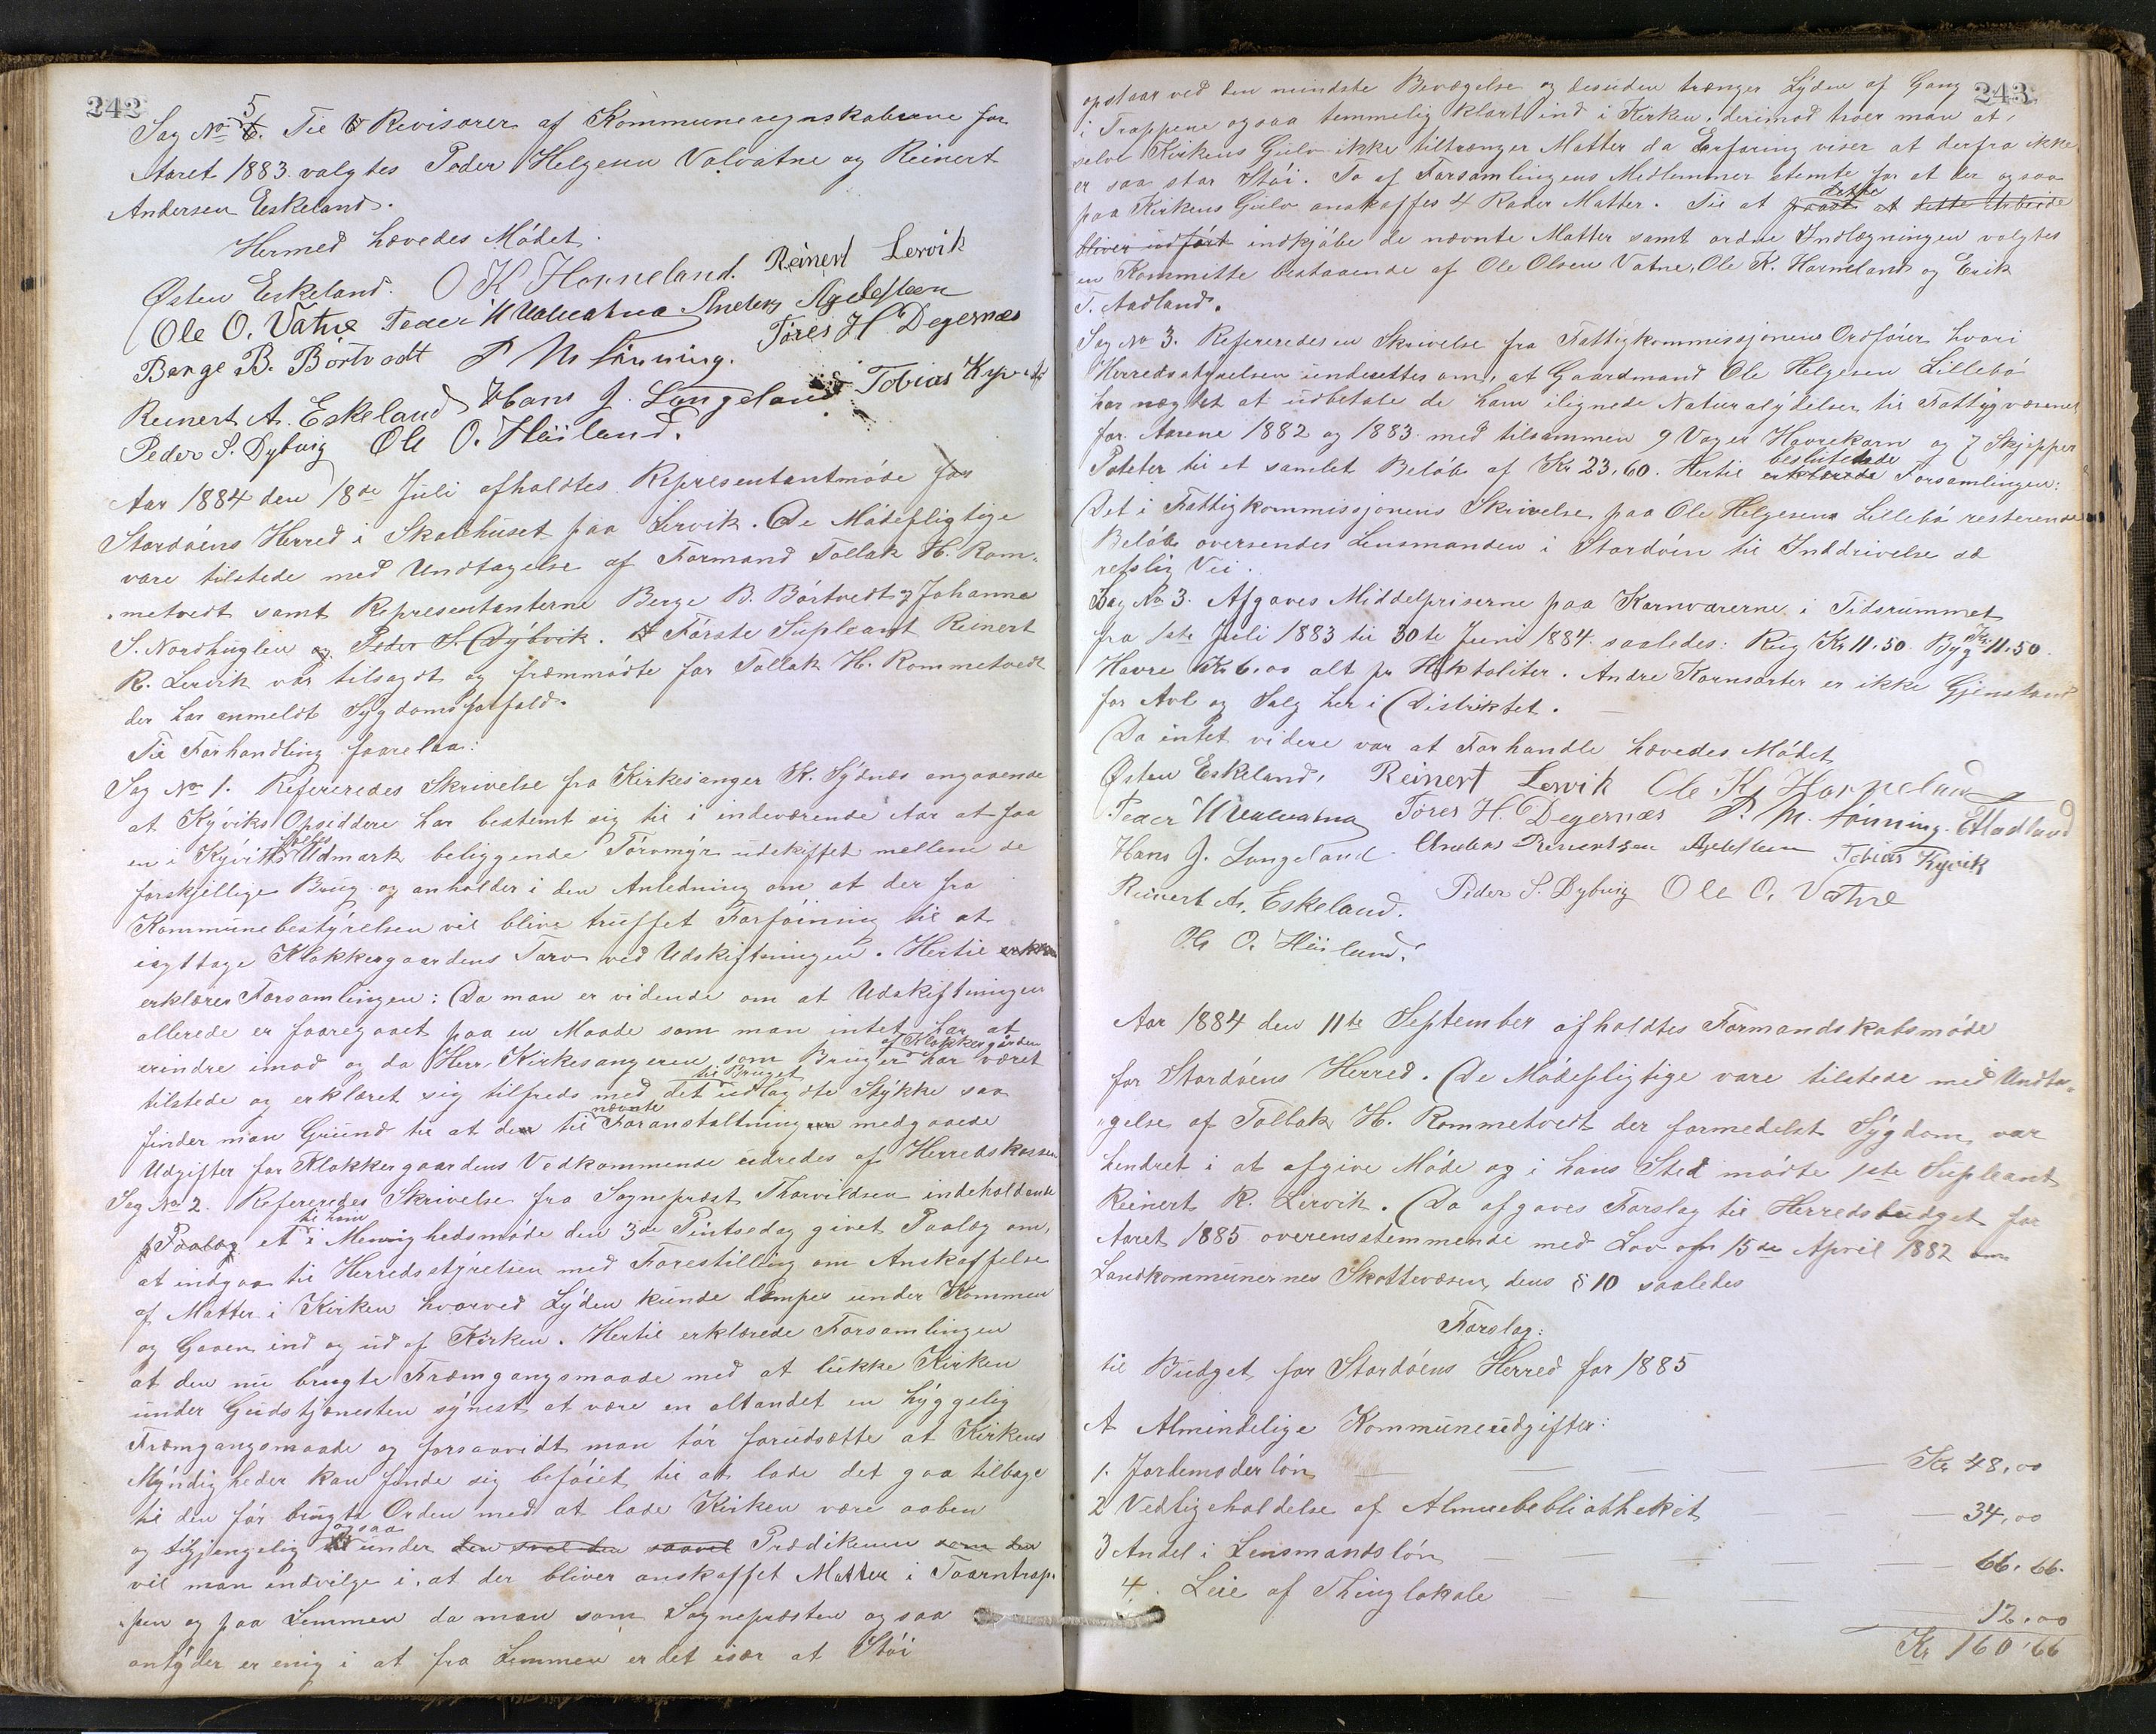 242
Sag No 5. Til Revisorer af Kommuneregnskaberne for
Aaret 1883 valgtes Peder Helgesen Valvatne og Reinert
Andersen Eskeland.
Hermed hævedes Mödet.
Østen Eskeland. O K Horneland. Reinert Lervik
Ole O. Vatne Peder H Valvatna Anders Agdesteen
Berge B. Börtvedt P M Lönning. Töres H. Degernæs
Reinert A. Eskeland Hans J. Langeland Tobias Kyvik
Peder S. Dybvig Ole O. Höiland.
Aar 1884 den 18de Juli afholdtes Representantmöde for
Stordöens Herred i Skolehuset paa Lervik. De Mödepligtige
vare tilstede med Undtagelse af Formand Tollak H. Rom-
metvedt samt Representanterne Berge B. Börtvedt og Johannes
S. Nordhuglen og Peder S. Dybvik. Förste Supleant Reinert
R. Lervik var tilsagdt og fremmödte for Tollak H. Rommetvedt
der har anmeldt Sygdomsforfald.
Til Forhandling forelaa:
Sag No 1. Refereredes Skrivelse fra Kirkesanger K. Sydnæs angaaende
at Kyviks Opsiddere har bestemt sig til i indeværende Aar at faa
en i Kyviks fælles Udmark beliggende Törvmyr udskiftet mellem de
forskjellige Brug og anholder i den Anledning om at der fra
Kommunebestyrelsen vil blive truffet Forföining til at
iagttage Klokkergaardens Tarv ved Udskiftningen. Hertil
erklærer Forsamlingen: Da man er vidende om at Udskiftningen
allerede er foregaaet paa en Maade som man intet har at
erindre imod og da Herr Kirkesangeren som Bruger af Klokkergården har været
tilstede og erklæret sig tilfreds med det til Bruget udlagdte Stykke saa
finder man Grund til at de til nævnte Foranstaltning medgaaede
Udgifter for Klokkergaardens Vedkommende udredes af Herredskassen.
Sag No 2. Refereredes Skrivelse fra Sognepræst Thorvildsen indeholdende
Paalæg et til ham i Menighedsmöde den 3de Pintsedag givet Paalæg om,
at indgaa til Herredsstyrelsen med Forestilling om Anskaffelse
af Matter i Kirken hvorved Lyden kunde dæmpes under Kommen
og Gaaen ind og ud af Kirken. Hertil erklærede Forsamlingen
at den nu brugte Fræmgangsmaade med at lukke Kirken
under Gudstjenesten synest at være en altandet en hyggelig
Fræmgangsmaade og forsaavidt man tör forudsætte at Kirkens
Myndigheder kan finde sig beföiet til at lade det gaa tilbage
til den för brugte Orden med at lade Kirken være aaben
og tilgjengelig ogsaa under den svel den saavel Prædikenen som den
vil man indvilge i, at der bliver anskaffet Matter i Taarntrap-
pen og paa Lemmen da man som Sognepræsten ogsaa
antyder er enig i at fra Lemmen er det især at Stöi
243
opstaar ved den mindste Bevægelse og desuden trænger Lyden af Gang
i Trappene ogsaa temmelig klart ind i Kirken, derimod troer man at
selve Kirkens Gulv ikke tiltrænger Matter da Erfaring viser at derfra ikke
er saa stor Stöi. To af Forsamlingens Medlemmer stemte for at der ogsaa
paa Kirkens Gulv anskaffes 4 Rader Matter. Til at dette Arbeide
bliver udfört indkjöbe de nævnte Matter samt ordne Indlægningen valgtes
en Kommitte bestaaende af Ole Olsen Vatne, Ole K. Horneland og Erik
T. Aadland.
Sag No 3. Refereredes en Skrivelse fra Fattigkommissjonens Ordförer hvori
Herredsstyrelsen underrettes om, at Gaardmand Ole Helgesen Lillebö
har nægtet at udbetale de ham ilignede Naturalydelser til Fattigvæsenet
for Aarene 1882 og 1883 med tilsammen 9 Voger Havrekorn og 7 Skjepper
Poteter til et samlet Belöb af Kr 23.60. Hertil erklærede besluttede Forsamlingen:
Det i Fattigkommissjonens Skrivelse paa Ole Helgesens Lillebö resterende
Belöb oversendes Lensmanden i Stordöen til Inddrivelse ad
retslig Vei.
Sag No 3. Afgaves Middelpriserne paa Kornvarerne i Tidsrummet
fra 1ste Juli 1883 til 30te Juni 1884 saaledes: Rug Kr 11.50. Byg Kr. 11.50.
Havre Kr 6.00 alt pr Hektoliter. Andre Kornsorter er ikke Gjenstand
for Avl og Salg her i Distriktet.
Da intet videre var at Forhandle hævedes Mödet
Østen Eskeland, Reinert Lervik Ole K. Horneland
Peder H Valvatna Töres H. Degernæs P. M. Lönning. E Aadland
Hans J. Langeland Anders Reinertsen Agdesteen Tobias Kyvik
Reinert A. Eskeland. Peder S. Dybvig Ole O. Vatne
Ole O. Höiland.
Aar 1884 den 11te September afholdtes Formandskabsmöde
for Stordöens Herred. De Mödepligtige vare tilstede med Undta-
gelse af Tollak H. Rommetvedt der formedelst Sygdom var
hindret i at afgive Möde og i hans Sted mödte 1ste Supleant
Reinert R. Lervik. Da afgaves Forslag til Herredsbudget for
Aaret 1885 overensstemmende med Lov af 15de April 1882 om
Landkommunernes Skattevæsen dens § 10 saaledes
Forslag:
til Budget for Stordöens Herred for 1885
A Almindelige Kommuneudgifter:
1. Jordemoderlön Kr 48,00
2 Vedligeholdelse af Almuebebliotheket 34,00
3 Andel i Lensmandslön 66.66.
4. Leie af Thinglokale 12.00
Kr 160,66